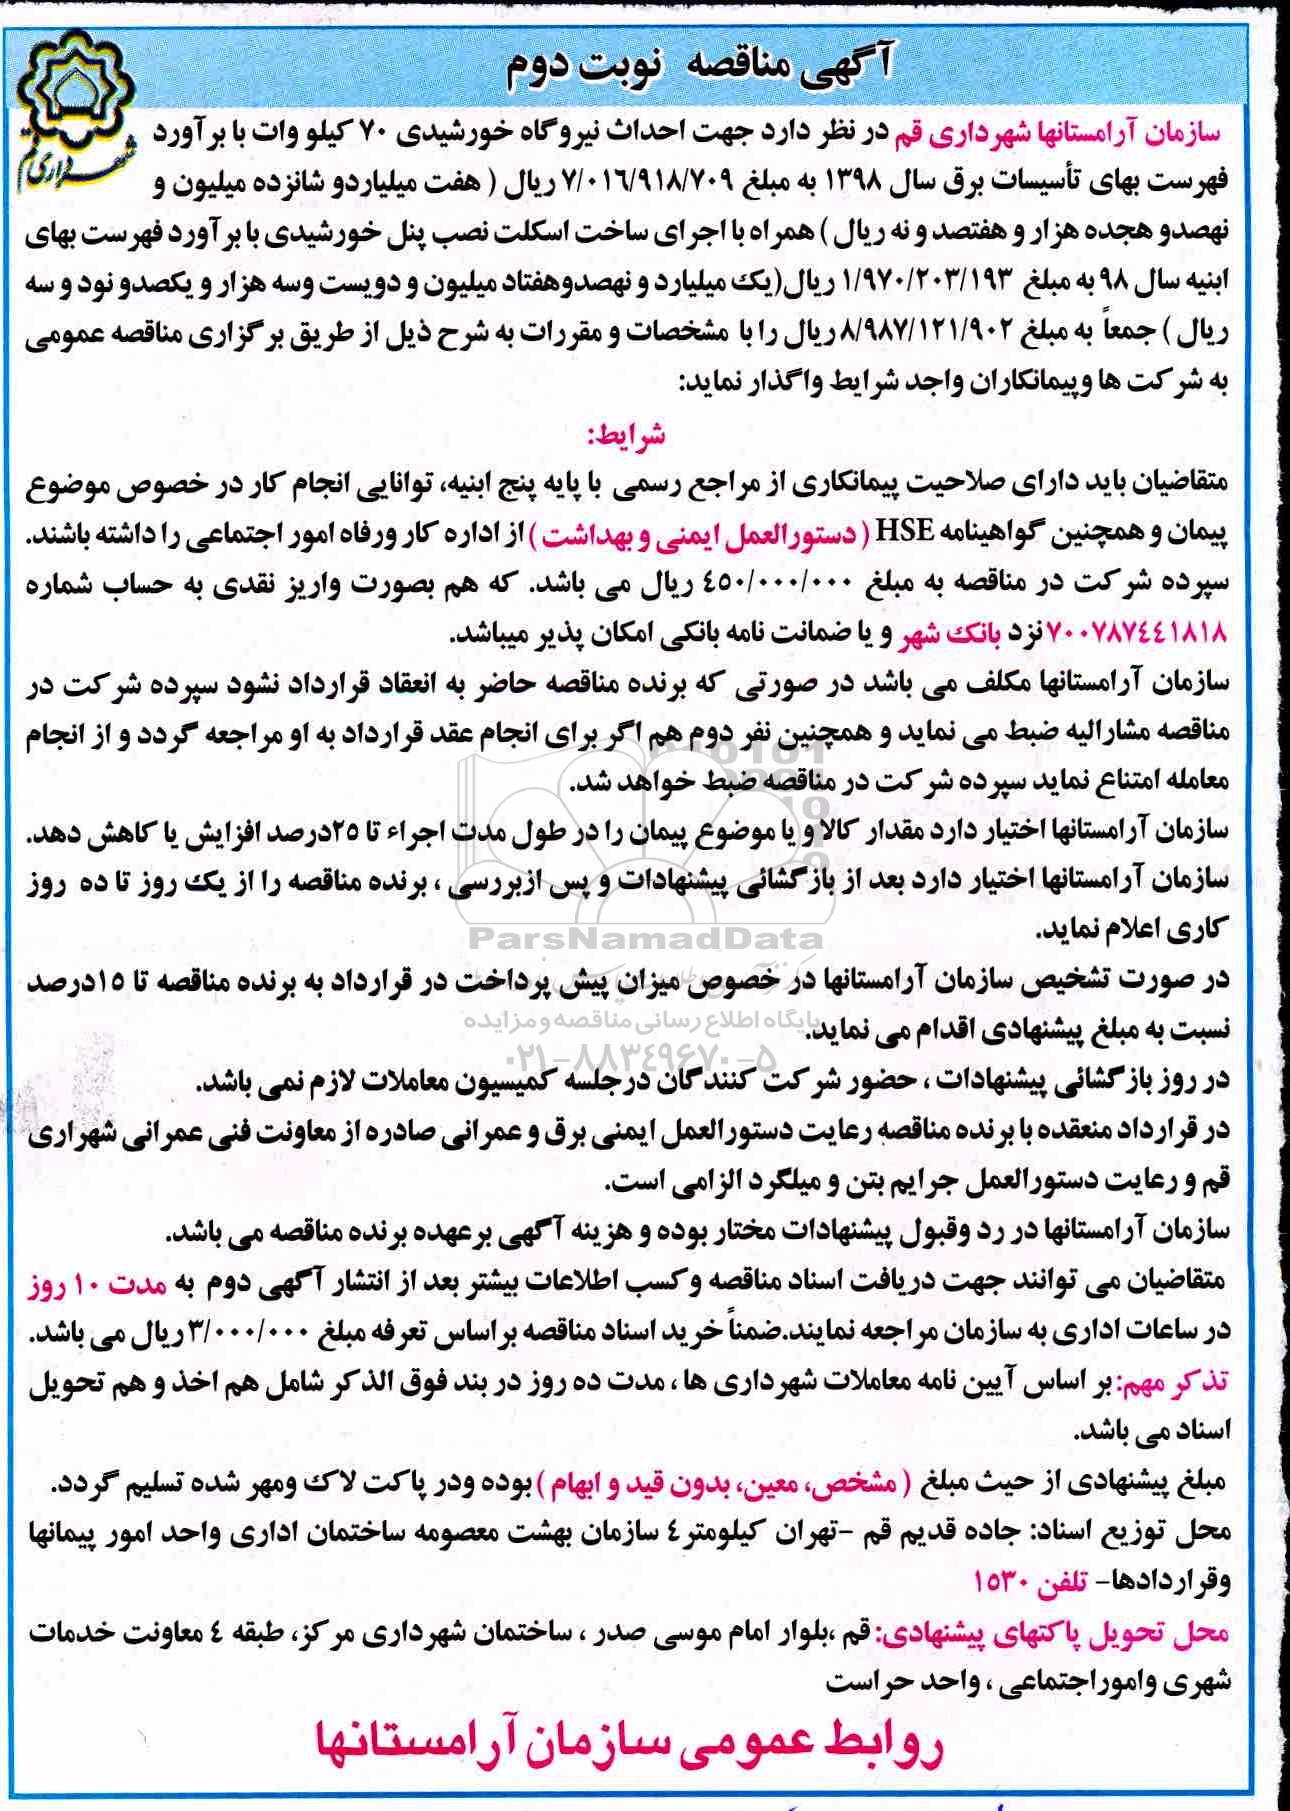 آگهی مناقصه نوبت دوم
شهرداری قم
سازمان آرامستانها شهرداری قم در نظر دارد جهت احداث نیروگاه خورشیدی ۷۰ کیلو وات با برآورد
فهرست بهای تأسیسات برق سال ۱۳۹۸ به مبلغ ۷/۰۱۶/۹۱۸/۷۰۹ ریال ( هفت میلیاردو شانزده میلیون و
نهصدو هجده هزار و هفتصد و نه ریال ) همراه با اجرای ساخت اسکلت نصب پنل خورشیدی با برآورد فهرست بهای
ابنیه سال ۹۸ به مبلغ ۱/۹۷۰/۲۰۳/۱۹۳ ریال(یک میلیارد و نهصدوهفتاد میلیون و دویست وسه هزار و یکصدو نود و سه
ریال ) جمعاً به مبلغ ۸/۹۸۷/۱۲۱/۹۰۲ ریال را با مشخصات و مقررات به شرح ذیل از طریق برگزاری مناقصه عمومی
به شرکت ها وپیمانکاران واجد شرایط واگذار نماید:
شرایط:
متقاضیان باید دارای صلاحیت پیمانکاری از مراجع رسمی با پایه پنج ابنیه، توانایی انجام کار در خصوص موضوع
پیمان و همچنین گواهینامه HSE ( دستورالعمل ایمنی و بهداشت ) از اداره کار ورفاه امور اجتماعی را داشته باشند.
سپرده شرکت در مناقصه به مبلغ ۴۵۰/۰۰۰/۰۰۰ ریال می باشد. که هم بصورت واریز نقدی به حساب شماره
۷۰۰۷۸۷۴۴۱۸۱۸ نزد بانک شهر و یا ضمانت نامه بانکی امکان پذیر میباشد.
سازمان آرامستانها مکلف می باشد در صورتی که برنده مناقصه حاضر به انعقاد قرارداد نشود سپرده شرکت در
مناقصه مشارالیه ضبط می نماید و همچنین نفر دوم هم اگر برای انجام عقد قرارداد به او مراجعه گردد و از انجام
معامله امتناع نماید سپرده شرکت در مناقصه ضبط خواهد شد.
سازمان آرامستانها اختیار دارد مقدار کالا و یا موضوع پیمان را در طول مدت اجراء تا ۲۵درصد افزایش یا کاهش دهد.
سازمان آرامستانها اختیار دارد بعد از بازگشائی پیشنهادات و پس ازبررسی ، برنده مناقصه را از یک روز تا ده روز
کاری اعلام نماید.
ParsNamadData
در صورت تشخیص سازمان آرامستانها در خصوص میزان پیش پرداخت در قرارداد به برنده مناقصه تا ۱۵درصد
نسبت به مبلغ پیشنهادی اقدام می نماید.
پایگاه اطلاع رسانی مناقصه و مزایده
۰۲۱-۸۸۳۴۹۶۷۰-۵
در روز بازگشائی پیشنهادات ، حضور شرکت کنندگان درجلسه کمیسیون معاملات لازم نمی باشد.
در قرارداد منعقده با برنده مناقصه رعایت دستورالعمل ایمنی برق و عمرانی صادره از معاونت فنی عمرانی شهراری
قم و رعایت دستورالعمل جرایم بتن و میلگرد الزامی است.
سازمان آرامستانها در رد وقبول پیشنهادات مختار بوده و هزینه آگهی برعهده برنده مناقصه می باشد.
متقاضیان می توانند جهت دریافت اسناد مناقصه وکسب اطلاعات بیشتر بعد از انتشار آگهی دوم به مدت ۱۰ روز
در ساعات اداری به سازمان مراجعه نمایند.ضمناً خرید اسناد مناقصه براساس تعرفه مبلغ ۳/۰۰۰/۰۰۰ ریال می باشد.
تذکر مهم: بر اساس آیین نامه معاملات شهرداری ها ، مدت ده روز در بند فوق الذکر شامل هم اخذ و هم تحویل
اسناد می باشد.
مبلغ پیشنهادی از حیث مبلغ ( مشخص، معین، بدون قید و ابهام ) بوده ودر پاکت لاک ومهر شده تسلیم گردد.
محل توزیع اسناد: جاده قدیم قم -تهران کیلومتر۴ سازمان بهشت معصومه ساختمان اداری واحد امور پیمانها
وقراردادها- تلفن ۱۵۳۰
محل تحویل پاکتهای پیشنهادی: قم ،بلوار امام موسی صدر ، ساختمان شهرداری مرکز، طبقه ۴ معاونت خدمات
شهری واموراجتماعی ، واحد حراست
روابط عمومی سازمان آرامستانها